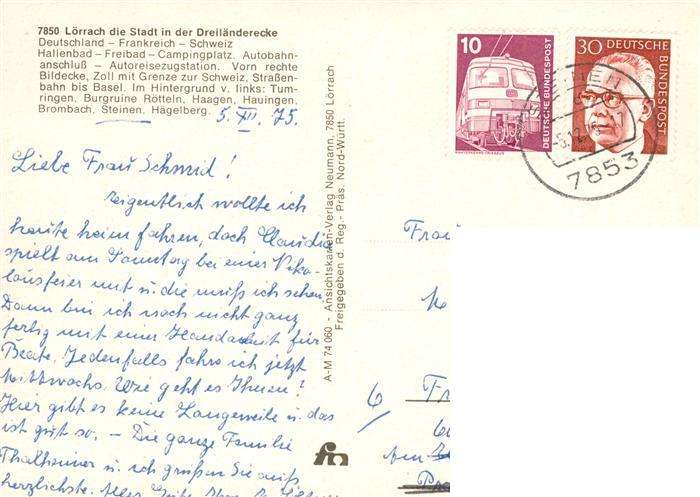 7850 Lörrach die Stadt in der Dreiländerecke
Deutschland – Frankreich – Schweiz
Hallenbad – Freibad – Campingplatz. Autobahn-
anschluß – Autoreisezugstation. Vorn rechte
Bildecke, Zoll mit Grenze zur Schweiz, Straßen-
bahn bis Basel. Im Hintergrund v. links: Tum-
ringen, Burgruine Rötteln, Haagen, Hauingen,
Brombach, Steinen, Hägelberg.
5. XII. 75.
Liebe Frau Schmid!
eigentlich wollte ich
heute heim fahren, doch Claudia
spielt am Sonntag bei einer Niko-
lausfeier mit u. die muß ich sehen.
Dann bin ich noch nicht ganz
fertig mit einer Handarbeit für
Beate. Jedenfalls fahre ich jetzt
Mittwochs. Wie geht es Ihnen?
Hier gibt es keine Langeweile u. das
ist gut so. – Die ganze Familie
Thalheimer u. ich grüßen Sie aufs
herzlichste. Alles Gute Ihre
A-M 74 060 - Ansichtskarten-Verlag Neumann, 7850 Lörrach
Freigegeben d. Reg.- Präs. Nord-Württ.
10
DEUTSCHE BUNDESPOST
30
DEUTSCHE
BUNDESPOST
7853
Frau
Fr